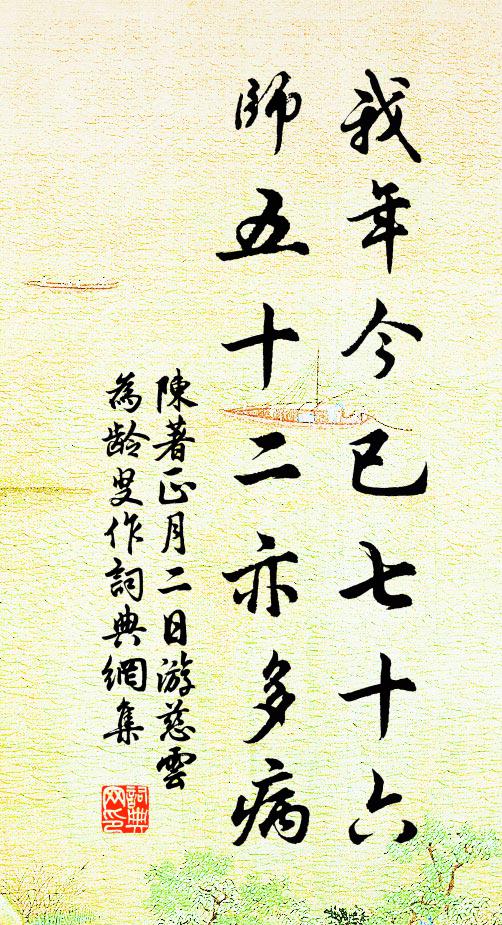 我年今已七十六
師五十二亦多病
陳著正月二日游慈雲
為龄叟作詞典網集
詞典
网印